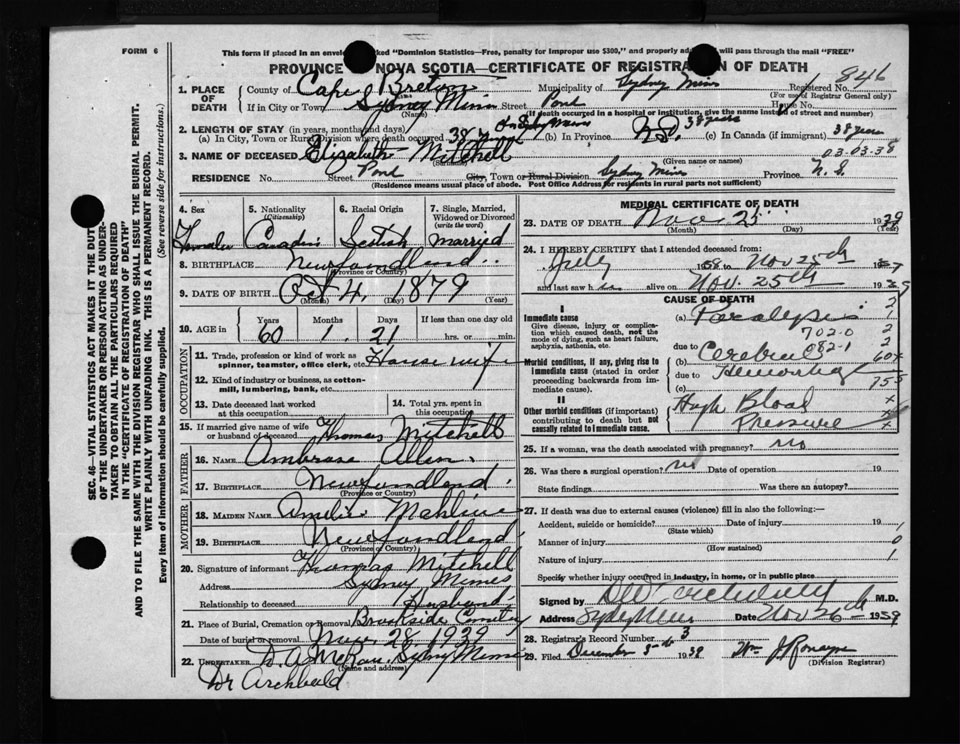 FORM 6
This form if placed in an envelope marked "Dominion Statistics—Free, penalty for improper use $300," and properly addressed will pass through the mail "FREE"
PROVINCE OF NOVA SCOTIA—CERTIFICATE OF REGISTRATION OF DEATH
1. PLACE OF DEATH County of Cape Breton Municipality of Sydney Mines Registered No. 846
(For use of Registrar General only)
If in City or Town Sydney Mines Street Pond House No.
(Name) (If death occurred in a hospital or institution, give the name instead of street and number)
2. LENGTH OF STAY (in years, months and days)
(a) In City, Town or Rural Division where death occurred 38 y (b) In Province N.S. 38 years (c) In Canada (if immigrant) 38 years
3. NAME OF DECEASED Elizabeth Mitchell 03-03-38
(Surname) (Given name or names)
RESIDENCE No. Street Pond City, Town or Rural Division Sydney Mines Province N. S.
(Residence means usual place of abode. Post Office Address for residents in rural parts not sufficient)
4. Sex Female
5. Nationality (Citizenship) Canadin
6. Racial Origin Scotish
7. Single, Married, Widowed or Divorced (write the word) married
8. BIRTHPLACE Newfoundland
(Province or Country)
9. DATE OF BIRTH Oct 4, 1879
(Month) (Day) (Year)
10. AGE in Years 60 Months 1 Days 21 If less than one day old
hrs. or min.
OCCUPATION
11. Trade, profession or kind of work as spinner, teamster, office clerk, etc. House wife
12. Kind of industry or business, as cotton-mill, lumbering, bank, etc.
13. Date deceased last worked at this occupation
14. Total yrs. spent in this occupation
15. If married give name of wife or husband of deceased Thomas Mitchell
FATHER
16. NAME Ambrose Allen
17. BIRTHPLACE Newfundland
(Province or Country)
MOTHER
18. MAIDEN NAME Amelia
19. BIRTHPLACE Newfondland
(Province or Country)
20. Signature of informant Thomas Mitchell
Address Sydney Mines
Relationship to deceased Husband
21. Place of Burial, Cremation or Removal Brookside Cemetery
Date of burial or removal Nov 28 1939
22. UNDERTAKER D. A. McRae, Sydney Mines
(Name and address)
Dr Archbald
MEDICAL CERTIFICATE OF DEATH
23. DATE OF DEATH Nov 25 1939
(Month) (Day) (Year)
24. I HEREBY CERTIFY that I attended deceased from:
July to Nov 25th
and last saw h alive on Nov. 25th 1939
CAUSE OF DEATH
I
Immediate cause
Give disease, injury or complication which caused death, not the mode of dying, such as heart failure, asphyxia, asthenia, etc.
(a) Paralysis
702-0
082-1
due to
Morbid conditions, if any, giving rise to immediate cause (stated in order proceeding backwards from immediate cause).
(b) Cerebral
due to Hemorrhag
(c)
II
Other morbid conditions (if important) contributing to death but not causally related to immediate cause.
High Blood
Pressure
25. If a woman, was the death associated with pregnancy? no
26. Was there a surgical operation? no Date of operation 19
State findings Was there an autopsy?
27. If death was due to external causes (violence) fill in also the following:—
Accident, suicide or homicide? Date of injury 19
(State which)
Manner of injury 0
(How sustained)
Nature of injury 1
Specify whether injury occurred in industry, in home, or in public place
Signed by M.D.
Address Syd Mines Date Nov 26th 1939
28. Registrar's Record Number 3
29. Filed December 1939 Wm J Ronayne
(Division Registrar)
SEC. 46—VITAL STATISTICS ACT MAKES IT THE DUTY
OF THE UNDERTAKER OR PERSON ACTING AS UNDER-
TAKER TO OBTAIN ALL THE PARTICULARS REQUIRED
IN THE "CERTIFICATE OF REGISTRATION OF DEATH"
AND TO FILE THE SAME WITH THE DIVISION REGISTRAR WHO SHALL ISSUE THE BURIAL PERMIT.
WRITE PLAINLY WITH UNFADING INK. THIS IS A PERMANENT RECORD.
Every item of information should be carefully supplied. (See reverse side for instructions.)